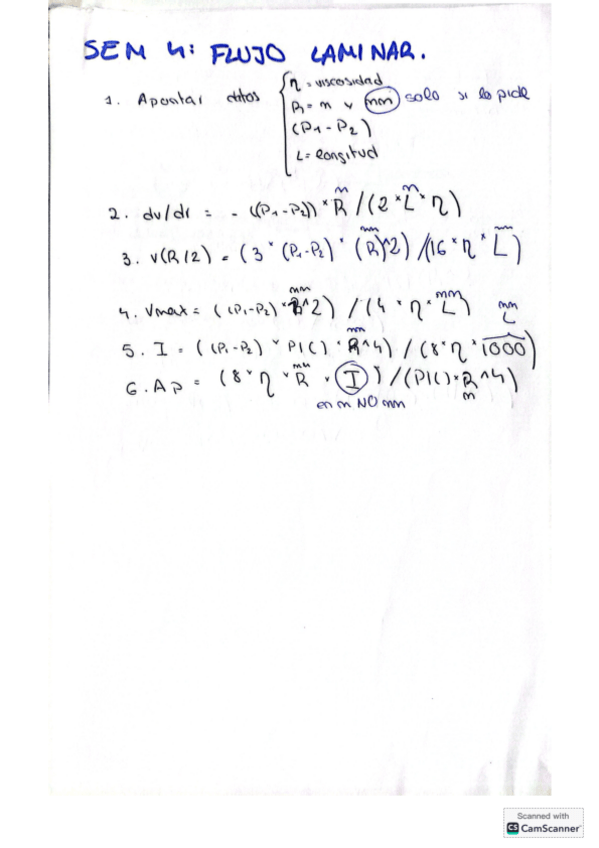 SEM 4: FLUJO LAMINAR.
1. Apuntar datos { η = viscosidad
R = m v mm solo si lo pide
(P1-P2)
L = longitud
m m
2. dv/dr = - ((P1-P2)) * R / (2 * L * η)
mm mm
3. v(R/2) = (3 * (P1-P2) * (R)^2) / (16 * η * L)
mm mm mm
4. Vmax = ((P1-P2) * R^2) / (4 * η * L) L
mm
5. I = ((P1-P2) * PI() * R^4) / (8 * η * 1000)
mm
6. Δp = (8 * η * R * I) / (PI() * R^4)
en m NO mm m
Scanned with
CS CamScanner